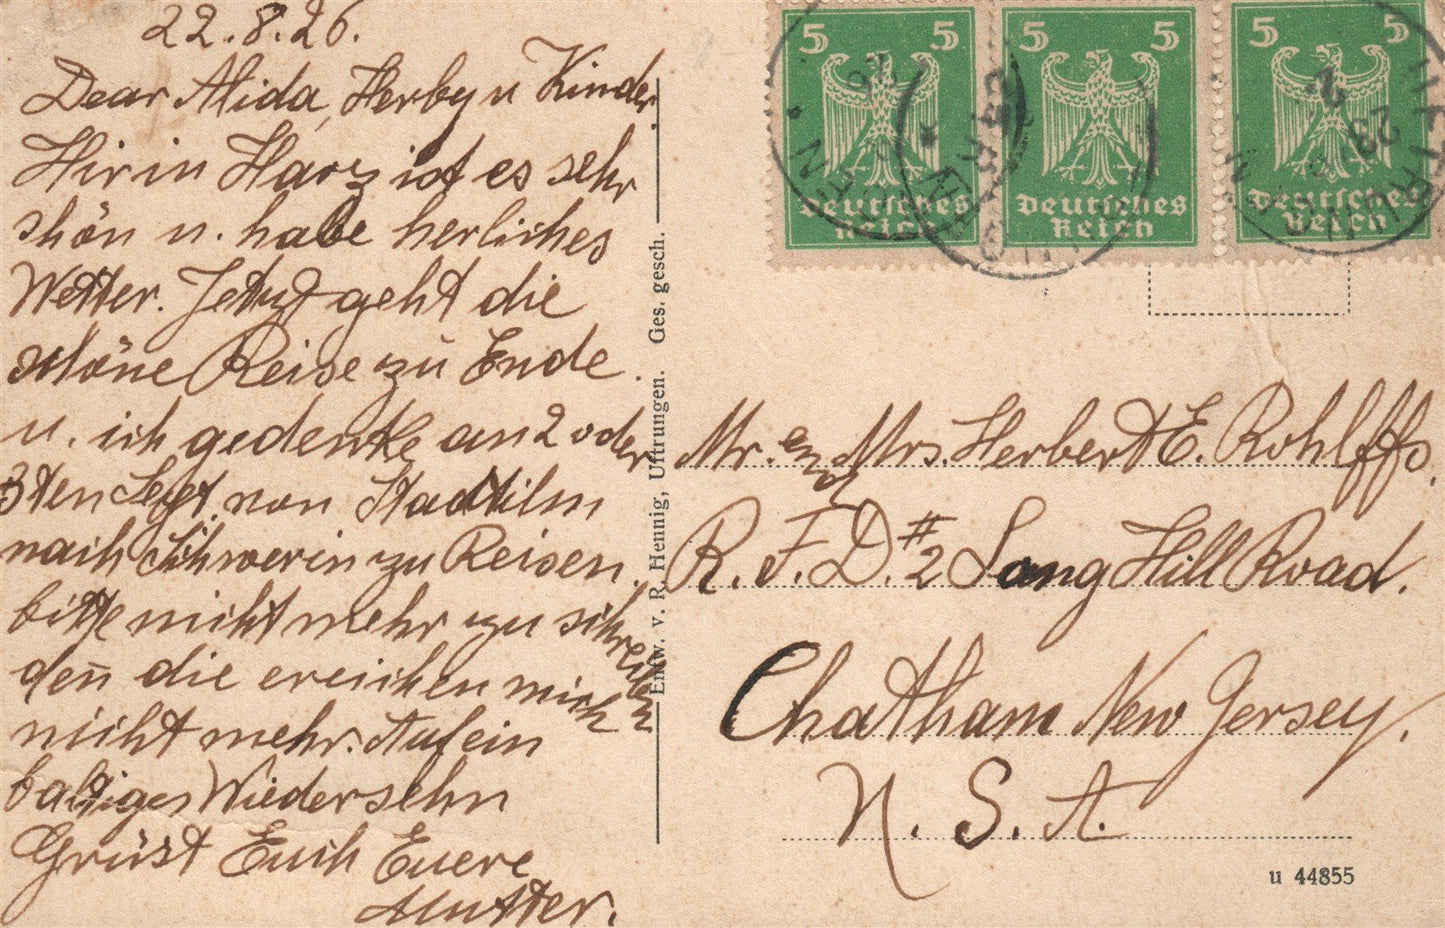 22.8.26.
Dear Alida, Herby u Kinder.
Hir in Harz ist es sehr
shön u. habe herliches
Wetter. Jetzt geht die
schöne Reise zu Ende.
u. ich gedenke an 2 oder
3ten Sept. von Stadtilm
nach Schwerin zu Reisen.
bitte nicht mehr zu schreiben
den die ereichen mich
nicht mehr. Auf ein
baldiges Wiedersehn
Grüst Euch Euere
Mutter.
Entw. v. R. Hennig, Uftrungen. Ges. gesch.
5 5
Deutsches
Reich
5 5
Deutsches
Reich
5 5
Deutsches
Reich
UFTRUNGEN
23
Mr. end Mrs. Herbert E. Rohlffs.
R. F. D. #2 Long Hill Road.
Chatham New Jersey.
U. S. A.
u 44855